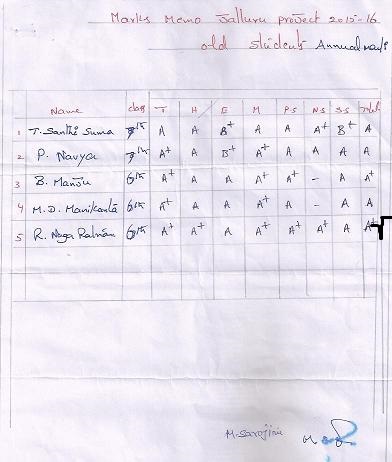 Marks Memo Jalluru project 2015-16
old students Annual marks
Name class T H E M P.S N.S S.S Total
1 T. Santhi Suma 8th A A B+ A A A+ B+ A
2 P. Navya 7th A+ A B+ A+ A A A A
3 B. Manju 6th A+ A A A+ A+ - A A+
4 M.D. Manikanta 6th A+ A A A+ A - A A
5 R. Naga Ratnam 6th A+ A+ A A+ A+ A+ A A+
M. Sarojini